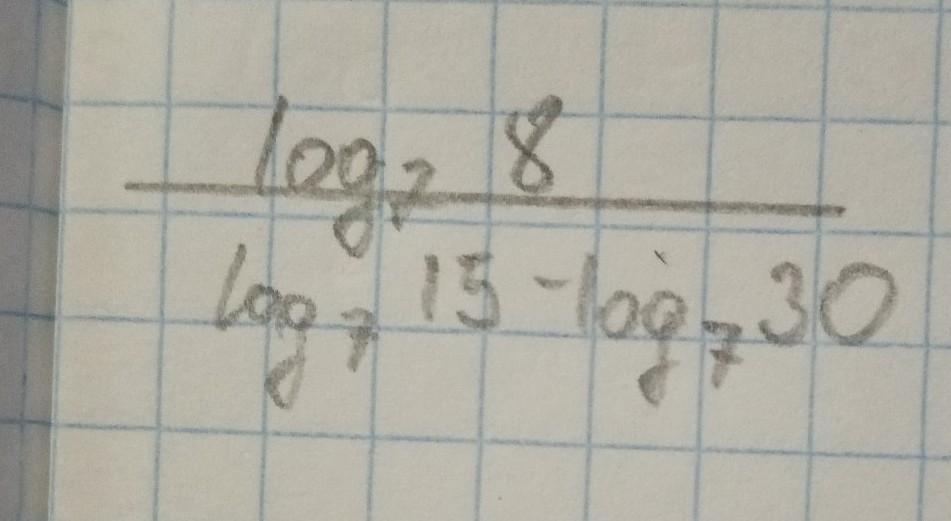 log₇ 8
log₇ 15 - log₇ 30